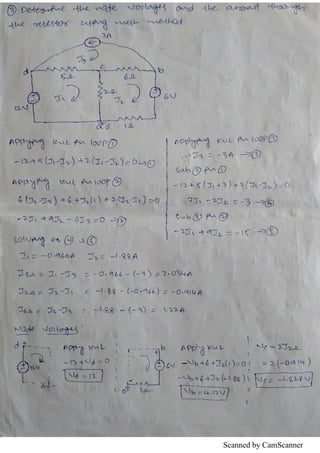 Determine the node voltages and the current through
the resistor using mesh method
3A
I3
d
5Ω
c
6Ω
b
12V
I1
2Ω
I2
6V
1Ω
Applying KVL for loop ①
-12+5(I1-I3)+2(I1-I2)=0→①
Applying KVL for loop ②
6(I2-I3)+6+I2(1)+2(I2-I1)=0
-2I1+9I2-6I3=-6→②
Applying KVL for loop ③
I3=-3A→③
Sub ③ in ①
-12+5(I1+3)+2(I1-I2)=0
7I1-2I2=-3→④
Sub ③ in ②
-2I1+9I2=-15→⑤
Solving eq ④ & ⑤
I1=-0.966A I2=-1.88A
I5Ω=I1-I3=-0.966-(-3)=2.034A
I2Ω=I2-I1=-1.88-(-0.966)=-0.914A
I6Ω=I2-I3=-1.88-(-3)=1.22A
Node Voltages:
d
12V
Apply KVL
-12+Vd=0
Vd=12
b
6V
1Ω
Apply KVL
-Vb+6+I2(1)=0
-Vb+6+(-1.88)
Vb=4.12V
Vc=2I2Ω
=2(-0.914)
Vc=-1.828V
Scanned by CamScanner